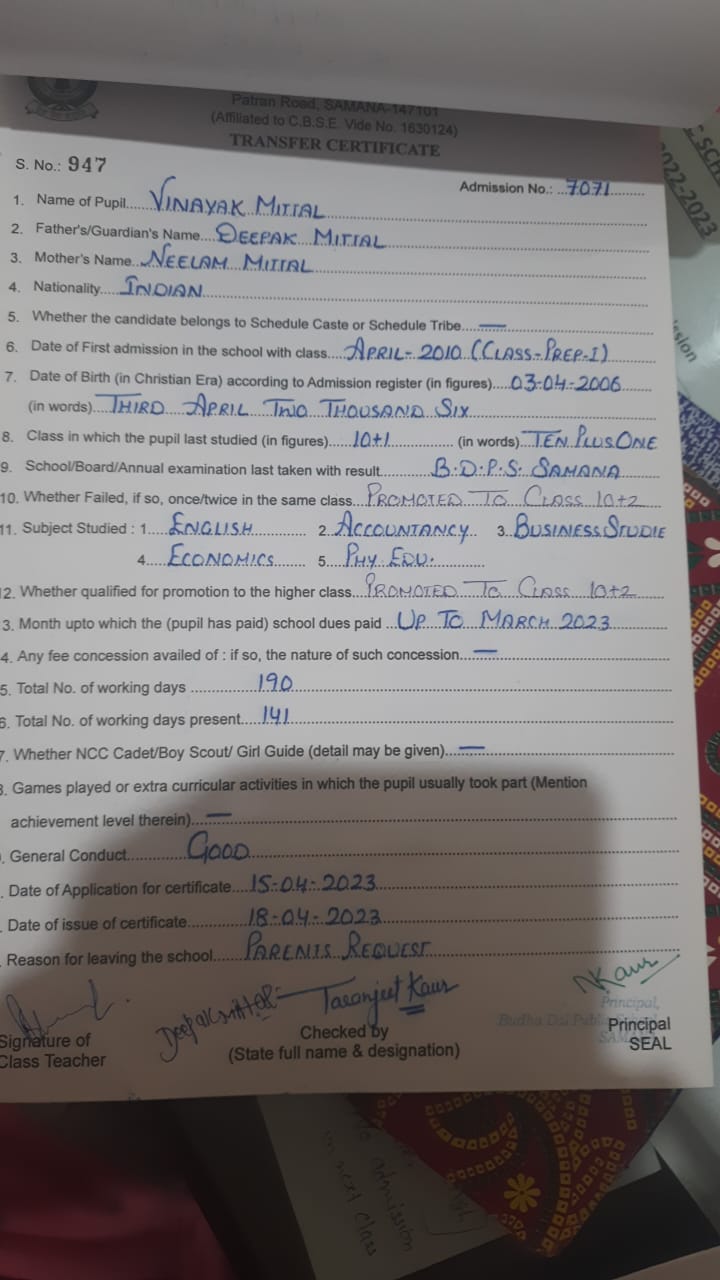 Patran Road, SAMANA-147101
(Affiliated to C.B.S.E. Vide No. 1630124)
TRANSFER CERTIFICATE
S. No.: 947
Admission No.: 7071
1. Name of Pupil VINAYAK MITTAL
2. Father's/Guardian's Name DEEPAK MITTAL
3. Mother's Name NEELAM MITTAL
4. Nationality INDIAN
5. Whether the candidate belongs to Schedule Caste or Schedule Tribe —
6. Date of First admission in the school with class APRIL-2010 (CLASS-PREP-I)
7. Date of Birth (in Christian Era) according to Admission register (in figures) 03-04-2006
(in words) THIRD APRIL TWO THOUSAND SIX
8. Class in which the pupil last studied (in figures) 10+1 (in words) TEN PLUS ONE
9. School/Board/Annual examination last taken with result B.D.P.S. SAMANA
10. Whether Failed, if so, once/twice in the same class PROMOTED TO CLASS 10+2
11. Subject Studied : 1. ENGLISH 2. ACCOUNTANCY 3. BUSINESS STUDIE
4. ECONOMICS 5. PHY EDU.
2. Whether qualified for promotion to the higher class PROMOTED TO CLASS 10+2
3. Month upto which the (pupil has paid) school dues paid UP TO MARCH 2023
4. Any fee concession availed of : if so, the nature of such concession —
5. Total No. of working days 190
6. Total No. of working days present 141
7. Whether NCC Cadet/Boy Scout/ Girl Guide (detail may be given) —
8. Games played or extra curricular activities in which the pupil usually took part (Mention
achievement level therein) —
. General Conduct GOOD
. Date of Application for certificate 15-04-2023
. Date of issue of certificate 18-04-2023
. Reason for leaving the school PARENTS REQUEST
Deepak Mittal Taranjeet Kaur NKaur
Principal,
Budha Dal Public School
SAMANA
Signature of
Class Teacher
Checked by
(State full name & designation)
Principal
SEAL
2022-2023
admission
in next class